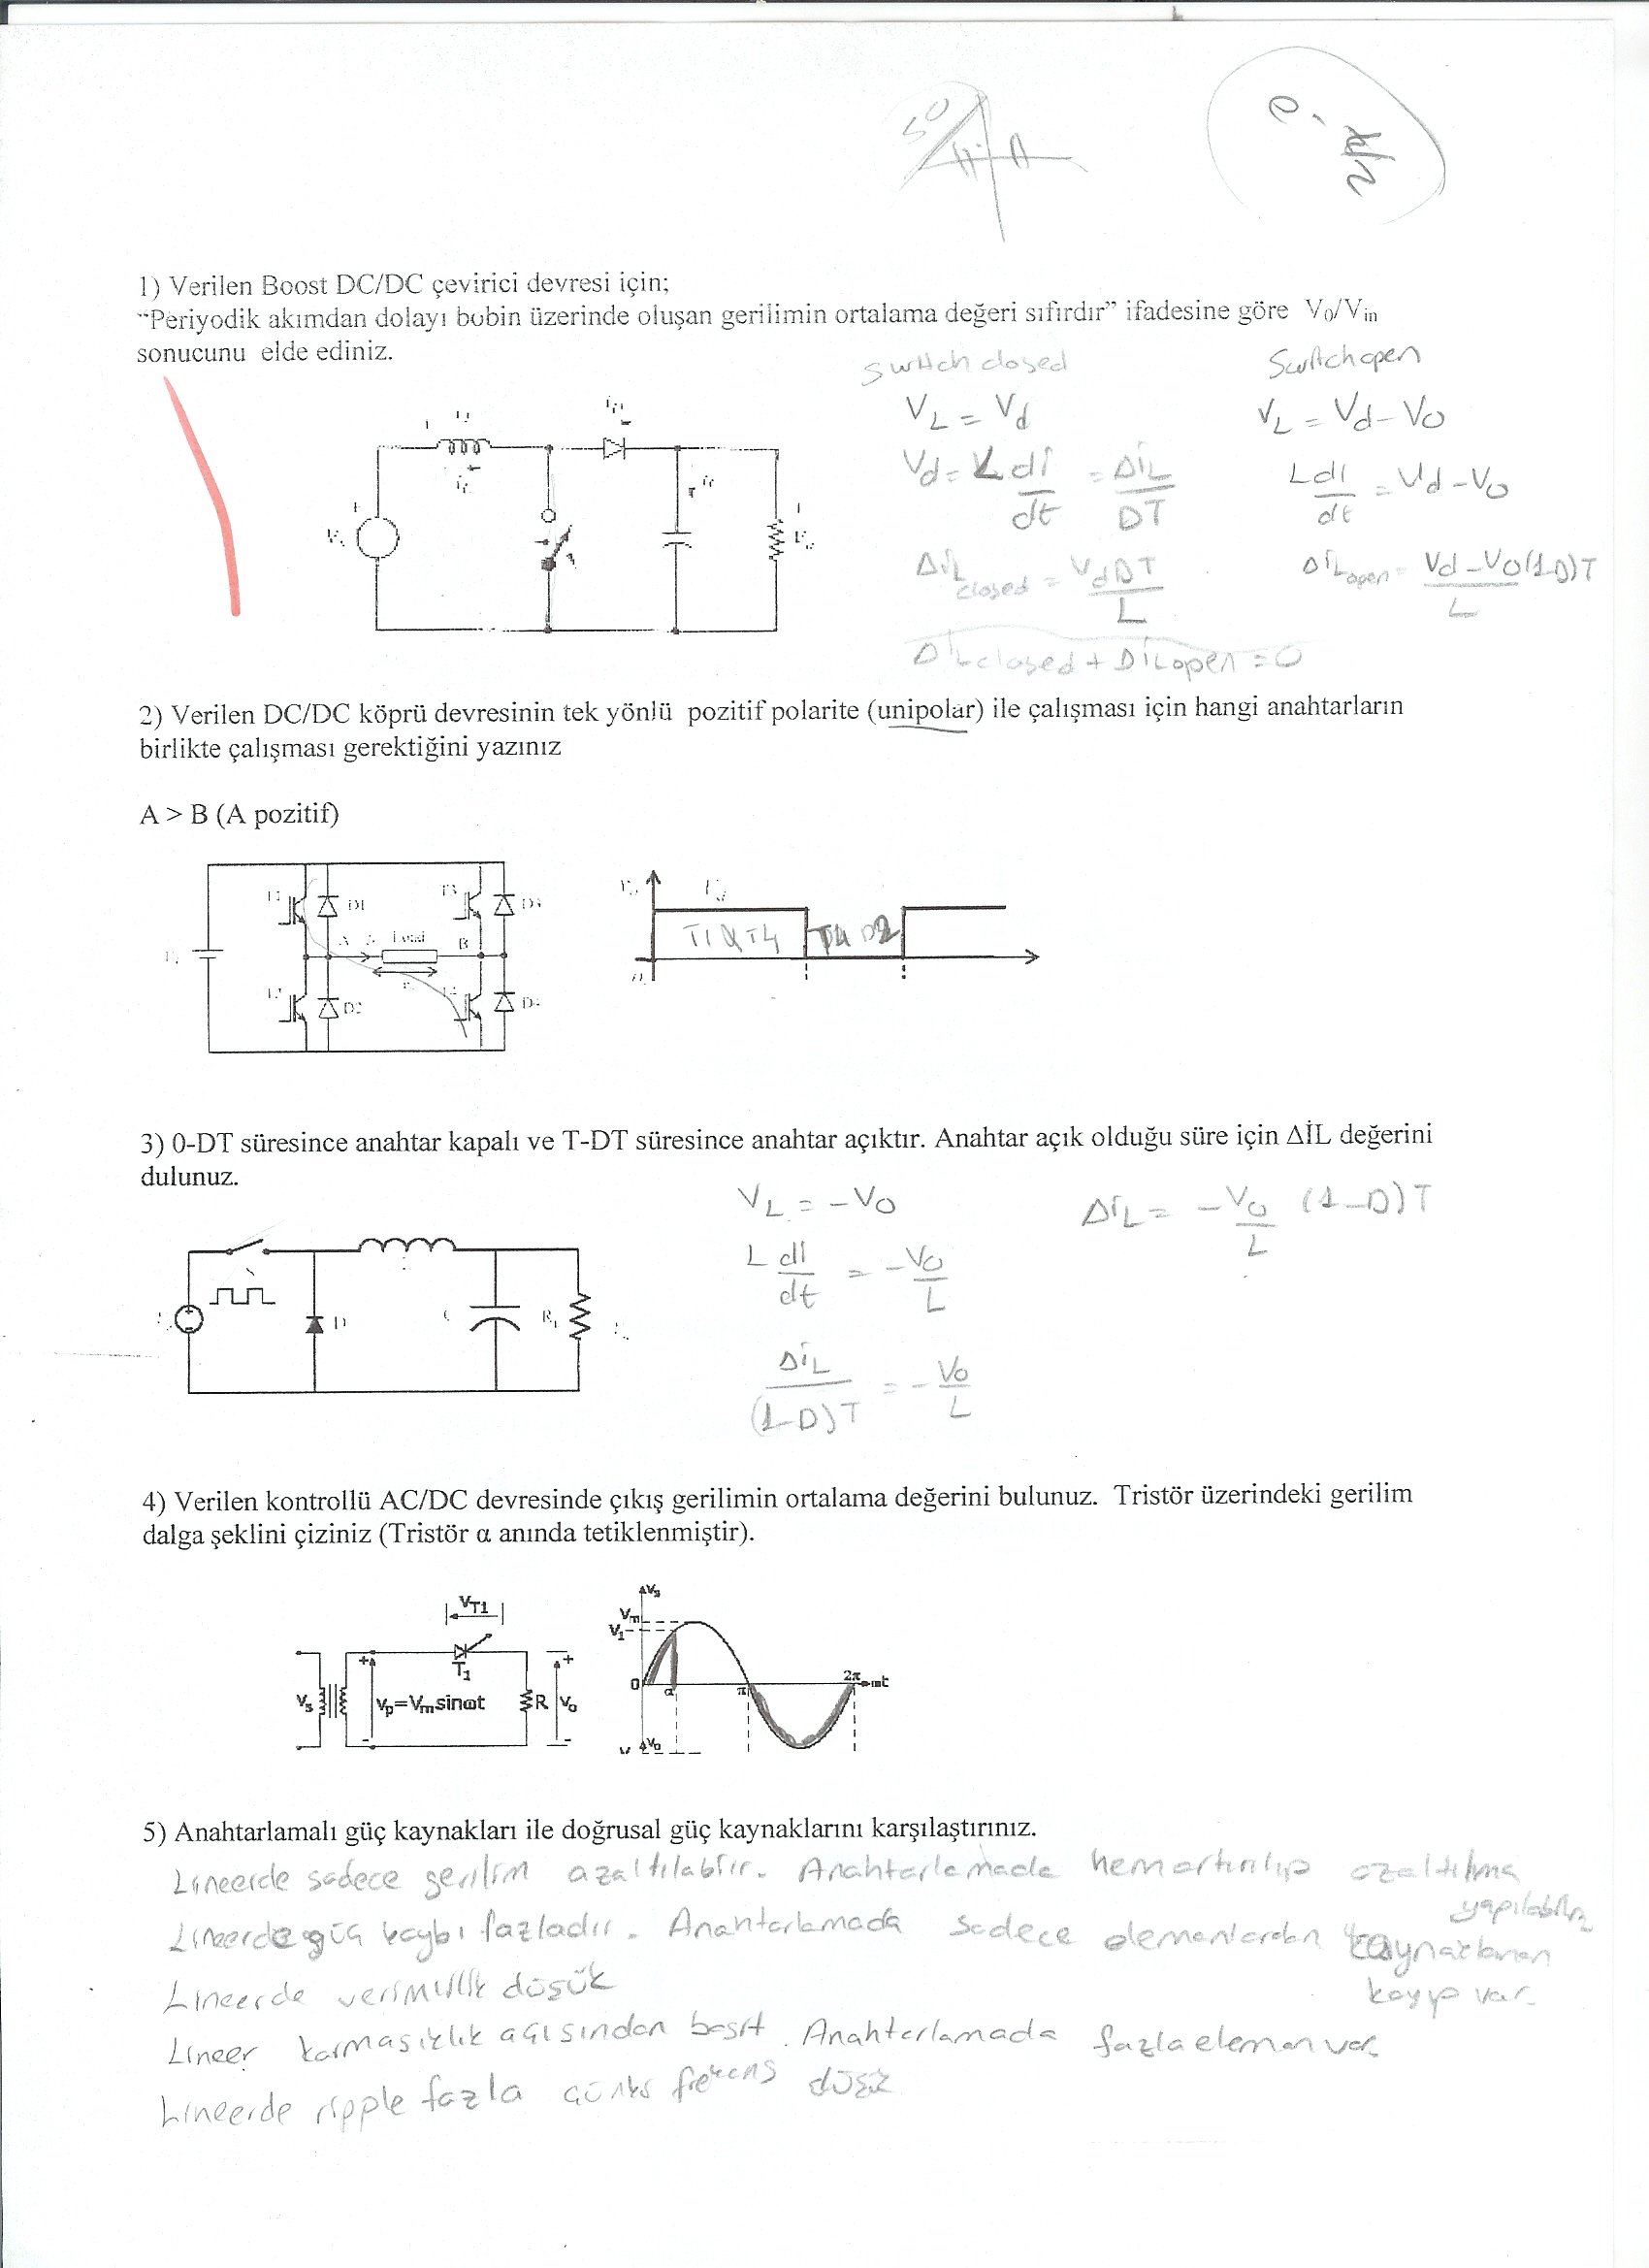 1) Verilen Boost DC/DC çevirici devresi için;
“Periyodik akımdan dolayı bobin üzerinde oluşan gerilimin ortalama değeri sıfırdır” ifadesine göre V0/Vin
sonucunu elde ediniz.
switch closed
VL = Vd
Vd = L di/dt = ΔiL/DT
ΔiL closed = VdDT/L
ΔiL closed + ΔiL open = 0
Switch open
VL = Vd - VO
L di/dt = Vd - VO
ΔiL open = Vd - VO(1-D)T/L
2) Verilen DC/DC köprü devresinin tek yönlü pozitif polarite (unipolar) ile çalışması için hangi anahtarların
birlikte çalışması gerektiğini yazınız
A > B (A pozitif)
D1
D3
A
Load
B
D2
D4
Vd
T1 & T4
T4 D2
3) 0-DT süresince anahtar kapalı ve T-DT süresince anahtar açıktır. Anahtar açık olduğu süre için ΔİL değerini
dulunuz.
VL = -VO
L di/dt = -VO/L
ΔiL/(1-D)T = -VO/L
ΔiL = -VO/L (1-D)T
D
4) Verilen kontrollü AC/DC devresinde çıkış gerilimin ortalama değerini bulunuz. Tristör üzerindeki gerilim
dalga şeklini çiziniz (Tristör α anında tetiklenmiştir).
VT1
T1
Vs
Vp=Vmsinωt
R
Vo
Vs
Vm
V1
0
α
π
2π
ωt
Vo
5) Anahtarlamalı güç kaynakları ile doğrusal güç kaynaklarını karşılaştırınız.
Lineerde sadece gerilim azaltılabilir. Anahtarlamada hem artırılıp azaltılma yapılabilir
Lineerde güç kaybı fazladır. Anahtarlamada sadece elemanlardan kaynaklanan kayıp var.
Lineerde verimlilik düşük
Lineer karmaşıklık açısından basit. Anahtarlamada fazla eleman var.
Lineerde ripple fazla çünkü frekans düşük